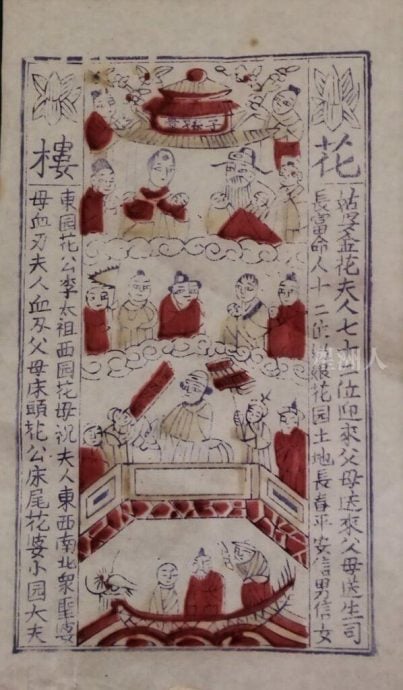 花
花夫人七十二位迎來父母送來父母送生司
長富命人十二位花园土地長春平安信男信女
樓
東园花公李太祖西园花母祝夫人東西南北衆聖婆
母血刃夫人血刃父母床頭花公床尾花婆小园大夫
洲人